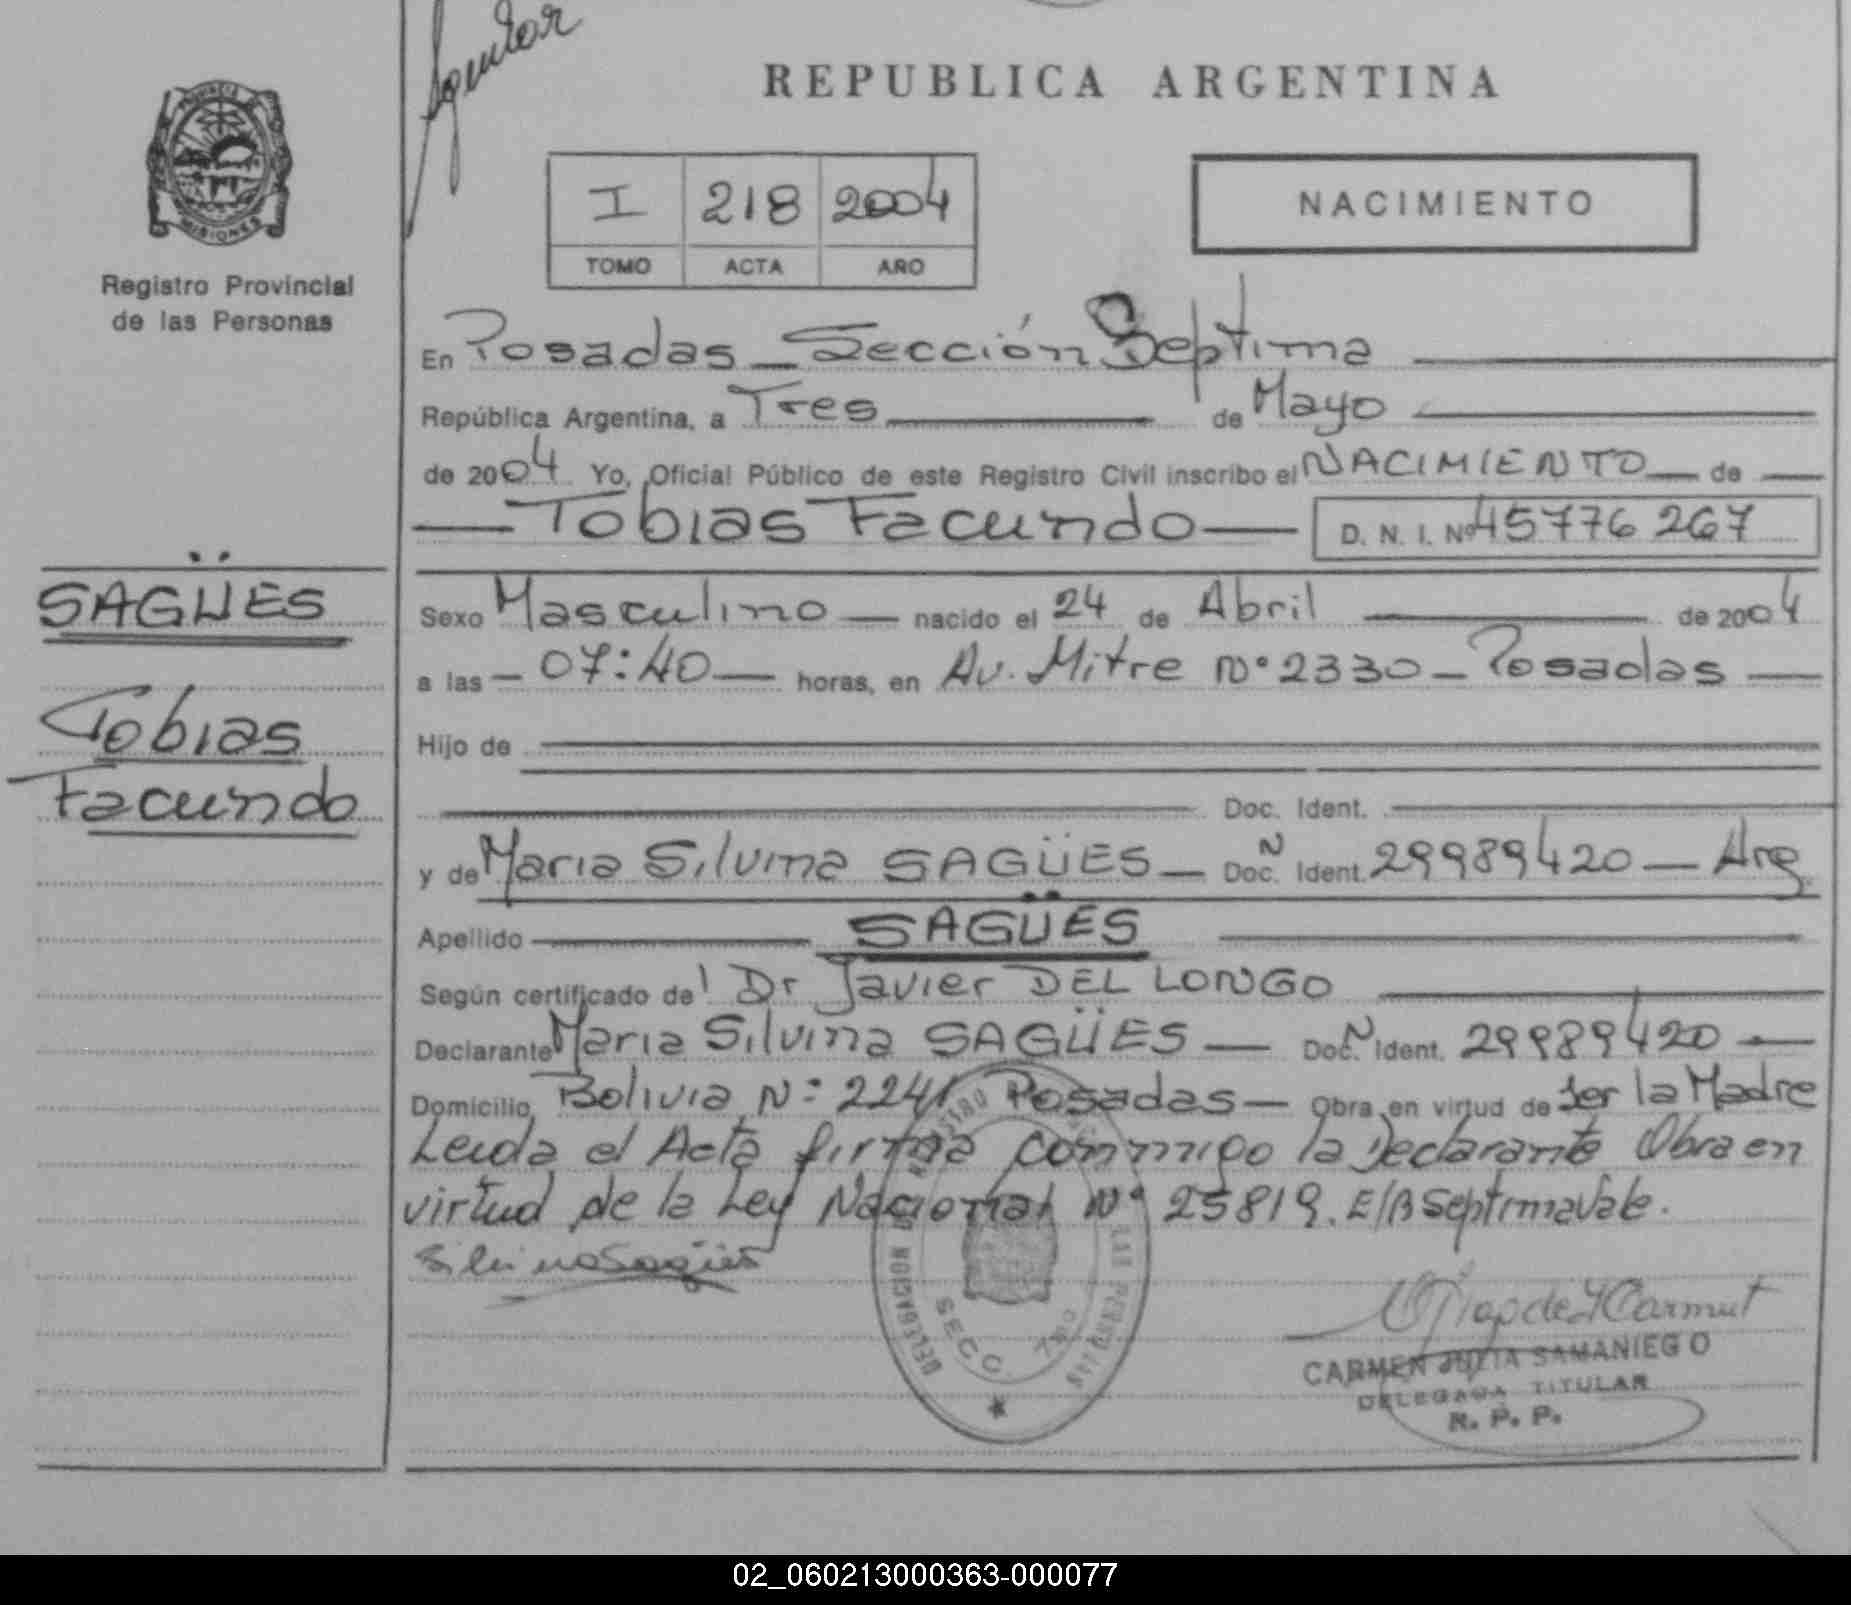 PROVINCIA DE
MISIONES
Registro Provincial
de las Personas
SAGÜES
Tobias
Facundo
REPUBLICA ARGENTINA
I 218 2004
TOMO ACTA AÑO
NACIMIENTO
En Posadas _ Sección Septima
República Argentina, a Tres de Mayo
de 2004 Yo, Oficial Público de este Registro Civil inscribo el NACIMIENTO de
Tobias Facundo D. N. I. Nº 45776 267
Sexo Masculino nacido el 24 de Abril de 2004
a las 07:40 horas, en Av. Mitre Nº 2330 _ Posadas
Hijo de
Doc. Ident.
y de Maria Silvina SAGÜES Doc. N Ident. 29989420 _ Arg.
Apellido SAGÜES
Según certificado del Dr Javier DEL LONGO
Declarante Maria Silvina SAGÜES Doc. N Ident. 29989420
Domicilio Bolivia Nº 2241 Posadas Obra en virtud de Ser la Madre
Leida el Acta firma conmigo la Declarante Obra en
virtud de la Ley Nacional Nº 25819. E/B Septima Vale.
Silvina Sagües
DELEGACION REGISTRO LAS PERSONAS
SECC. 7ma
CARMEN JULIA SAMANIEGO
DELEGADA TITULAR
R. P. P.
02_060213000363-000077